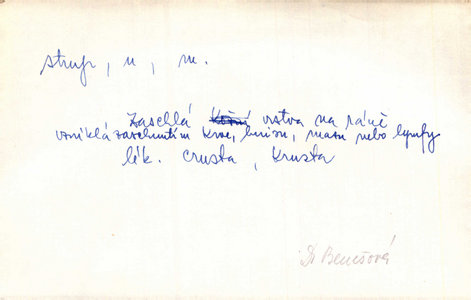 strup, u, m.
Zaschlá vrstva na ráně
vzniklá zaschnutím krve, hnisu, mazu nebo lymfy
lék. crusta, krusta
Dr Benešová